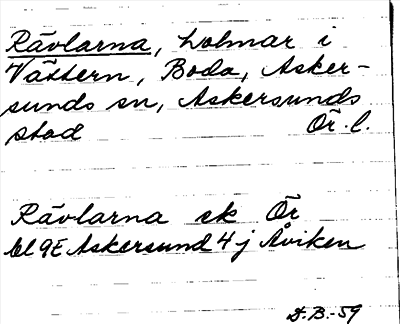 Rävlarna, holmar i
Vättern, Boda, Asker-
sunds sn, Askersunds
stad Ör. l.
Rävlarna ek Ör
bl 9E Askersund 4j Åviken
D.B.-59